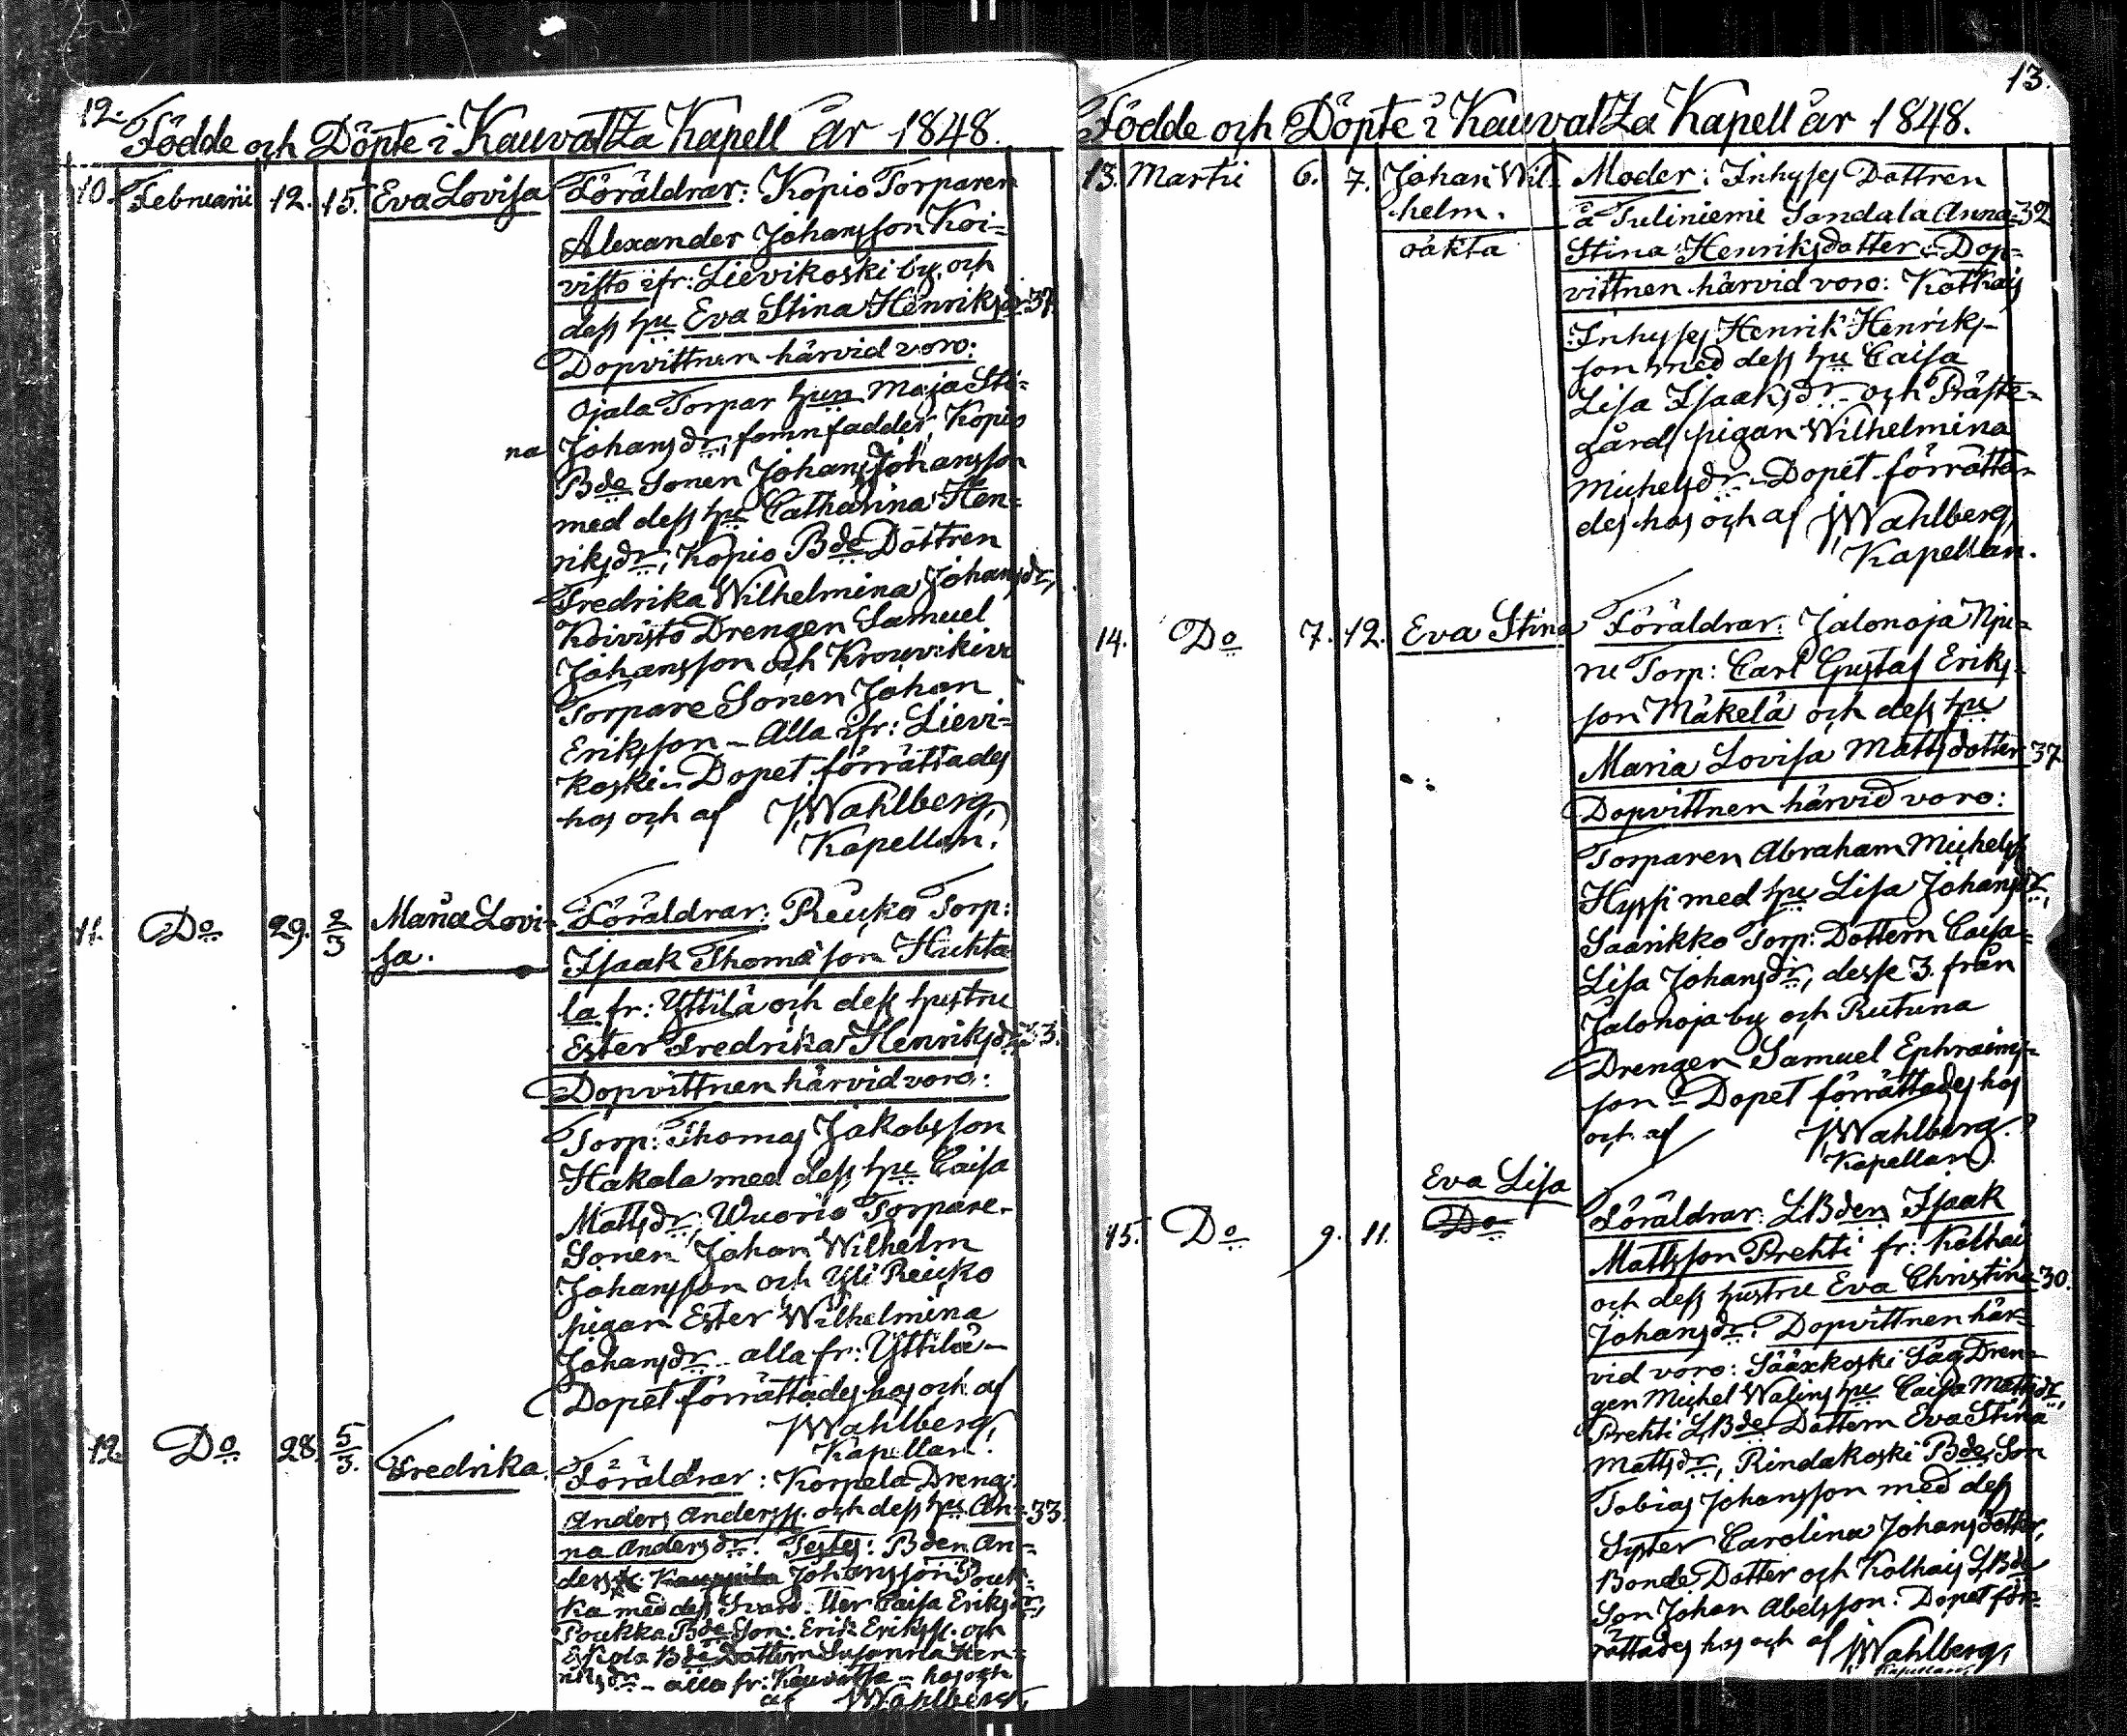 12.
Födde och Döpte i Kauvatza Kapell år 1848.
10. Februarii 12. 15. Eva Lovisa Föräldrar: Kopio Torparen
Alexander Johansson Koi=
visto ifr: Lievikoski by, och
dess hu Eva Stina Henriksdr. 37.
Dopvittnen härvid voro:
Ojala Torpar hun Maja Sti=
na Johansdr, somn fadder, Kopio
Bde Sonen Johan Johansson
med dess hu Catharina Hen=
riksdr, Kopio Bde Dottren
Fredrika Wilhelmina Johansdr,
Koivisto Drengen Samuel
Johansson och
Torpare Sonen Johan
Eriksson – Alla ifr: Lievi=
koski – Dopet förrättades
hos och af JWahlberg,
Kapellan.
11. Do 29. 2/3 Maria Lovi=
sa.
Föräldrar: Reuko Torp:
Isaak Thomasson Huhta
la fr: Yttilä och dess hustru
Ester Fredrika Henriksdr. 33.
Dopvittnen härvid voro:
Torp: Thomas Jakobsson
Hakala med dess hu Caisa
Mattsdr, Wuorio Torpare-
Sonen Johan Wilhelm
Johansson och Yli Reuko
pigan Ester Wilhelmina
Johansdr – alla fr: Yttilä –
Dopet förrättades hos och af
JWahlberg,
Kapellan.
12. Do 28. 5/3. Fredrika. Föräldrar: Korpela Dreng:
Anders Anderss. och dess hu An= 33.
na Andersdr. Testes: Bden An=
ders Johansson Pouk=
ka med dess Caisa Eriksdr,
Poukka Bde Son: Erik Erikss. och
Bde Dottern Susanna Hen=
riksdr – alla fr: Kauvatza – hos och
af JWahlberg,
13.
Födde och Döpte i Kauvatza Kapell år 1848.
13. Martii 6. 7. Johan Wil=
helm.
oäkta
Moder: Inhyses Dottren
å Tuliniemi Sandala Anna 32.
Stina Henriksdotter – Dop=
vittnen härvid voro:
Inhyses Henrik Henriks-
son med dess hu Caisa
Lisa Isaaksdr – och Präste=
gårds pigan Wilhelmina
Michelsdr – Dopet förrätta=
des hos och af JWahlberg,
Kapellan.
14. Do 7. 12. Eva Stina Föräldrar: Jalonoja
Torp: Carl Gustaf Eriks=
son Mäkelä och dess hu
Maria Lovisa Mattsdotter 37
Dopvittnen härvid voro:
Torparen Abraham Michelss
Hyssi med hu Lisa Johansdr,
Saarikko Torp: Dottern Caisa=
Lisa Johansdr, desse 3. från
Jalonoja by och Rutuna
Drengen Samuel Ephraims=
son – Dopet förrättades hos
och af JWahlberg.
Kapellan.
Eva Lisa
15. Do 9. 11. Do Föräldrar: LBden Isaak
Mattsson Prehti fr: Kolhais
och dess hustru Eva Christina 30.
Johansdr. Dopvittnen här=
vid voro: Sääxkoski Såg Dren=
gen Michel Walins hu Caisa Mattsdr,
Prehti LBde Dottern Eva Stina
Mattsdr, Rindakoski Bde Son
Tobias Johansson med dess
Syster Carolina Johansdotter,
Bonde Dotter och Kolhais LBde
Son Johan Abelsson. Dopet för=
rättades hos och af JWahlberg,
Kapellan.